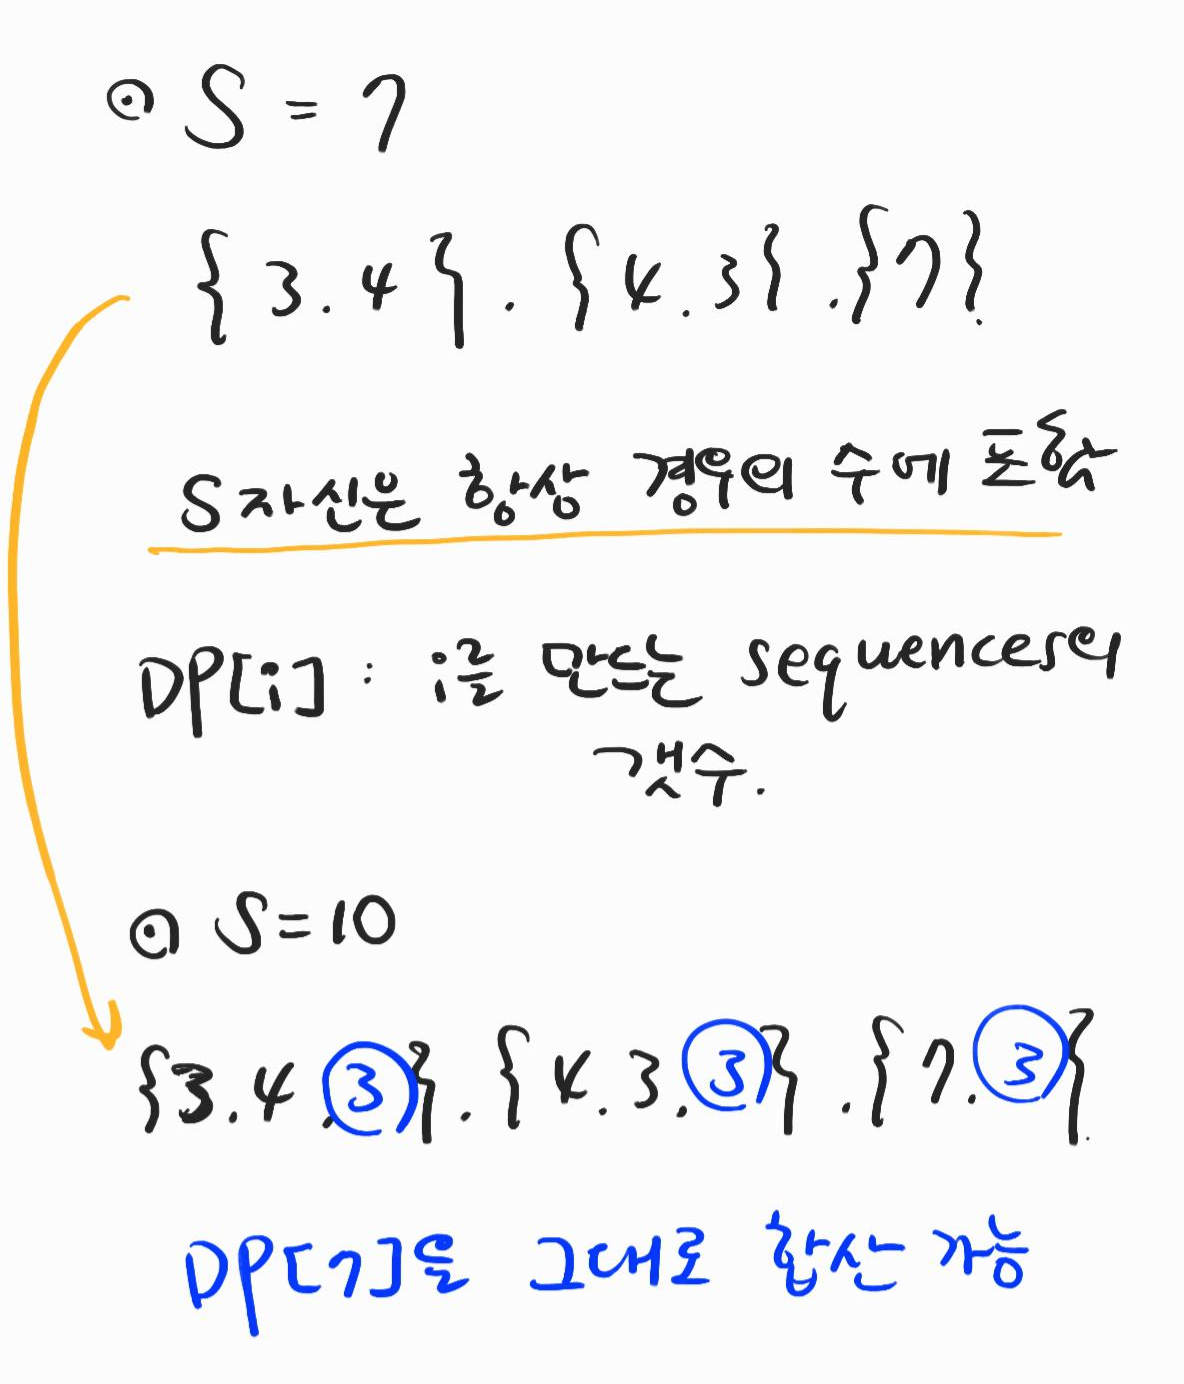 ⊙ S = 7
{3.4}.{4.3}.{7}.
S자신은 항상 경우의 수에 포함
DP[i] : i를 만드는 sequences의
갯수.
⊙ S=10
{3.4.3}.{4.3.3}.{7.3}.
DP[7]을 그대로 합산 가능